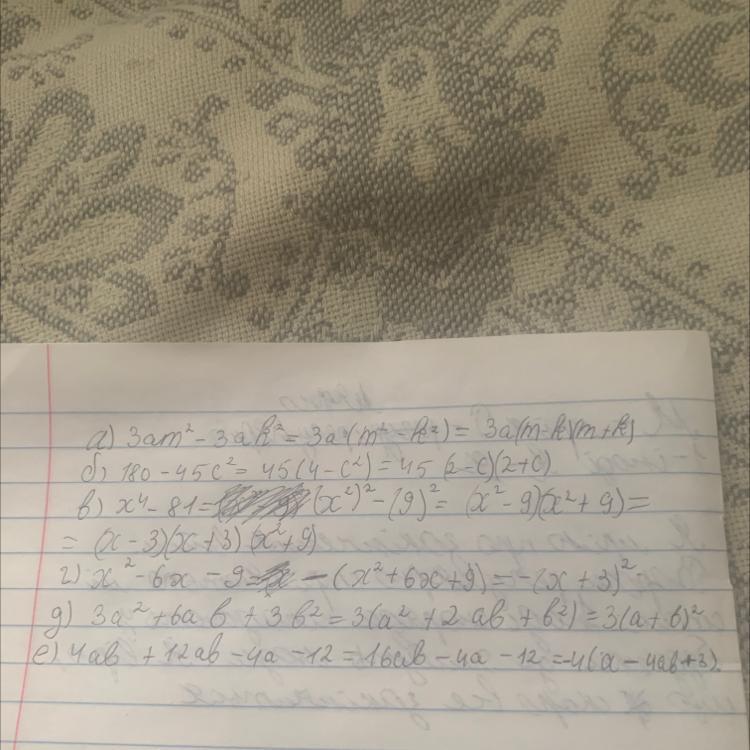 а) 3am² - 3ak² = 3a(m² - k²) = 3a(m-k)(m+k)
б) 180 - 45c² = 45(4-c²) = 45(2-c)(2+c)
в) x⁴ - 81 = (x²)² - (9)² = (x² - 9)(x² + 9) =
= (x - 3)(x + 3)(x² + 9)
г) x² - 6x - 9 = - (x² + 6x + 9) = -(x + 3)²
д) 3a² + 6ab + 3b² = 3(a² + 2ab + b²) = 3(a + b)²
е) 4ab + 12ab - 4a - 12 = 16ab - 4a - 12 = -4(a - 4ab + 3).